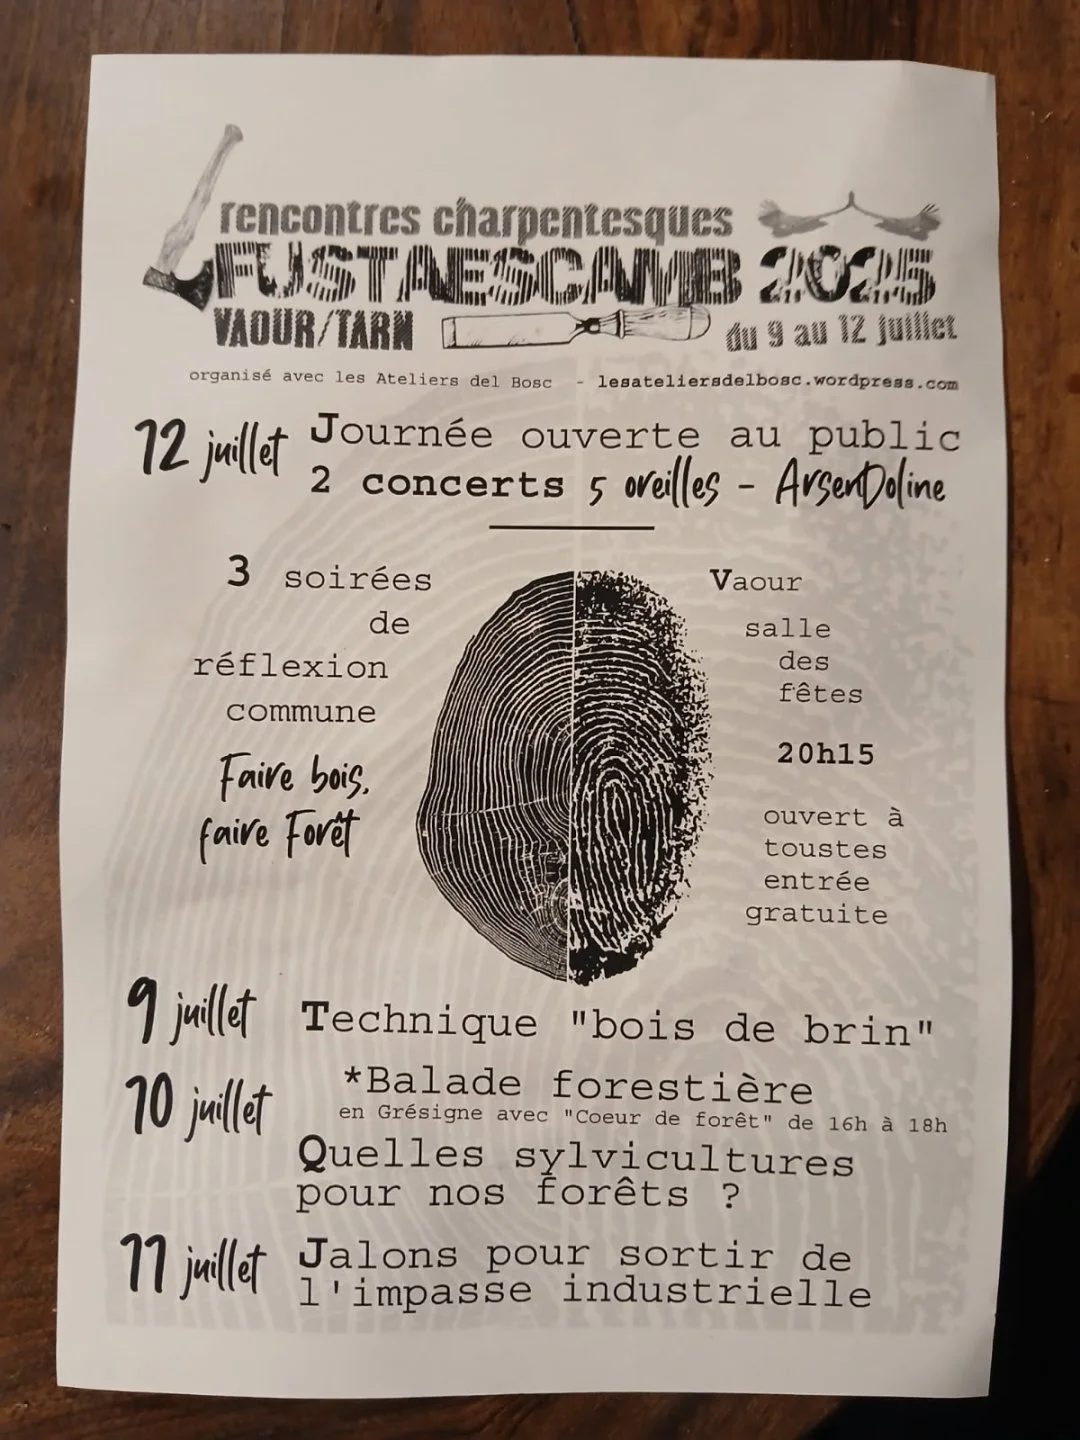 rencontres charpentesques
FUSTAESCAMB 2025
VAOUR/TARN
du 9 au 12 juillet
organisé avec les Ateliers del Bosc - lesateliersdelbosc.wordpress.com
12 juillet
Journée ouverte au public
2 concerts 5 oreilles - ArsenDoline
3 soirées
de
réflexion
commune
Faire bois,
faire Forêt
Vaour
salle
des
fêtes
20h15
ouvert à
toustes
entrée
gratuite
9 juillet
Technique "bois de brin"
10 juillet
*Balade forestière
en Grésigne avec "Coeur de forêt" de 16h à 18h
Quelles sylvicultures
pour nos forêts ?
11 juillet
Jalons pour sortir de
l'impasse industrielle